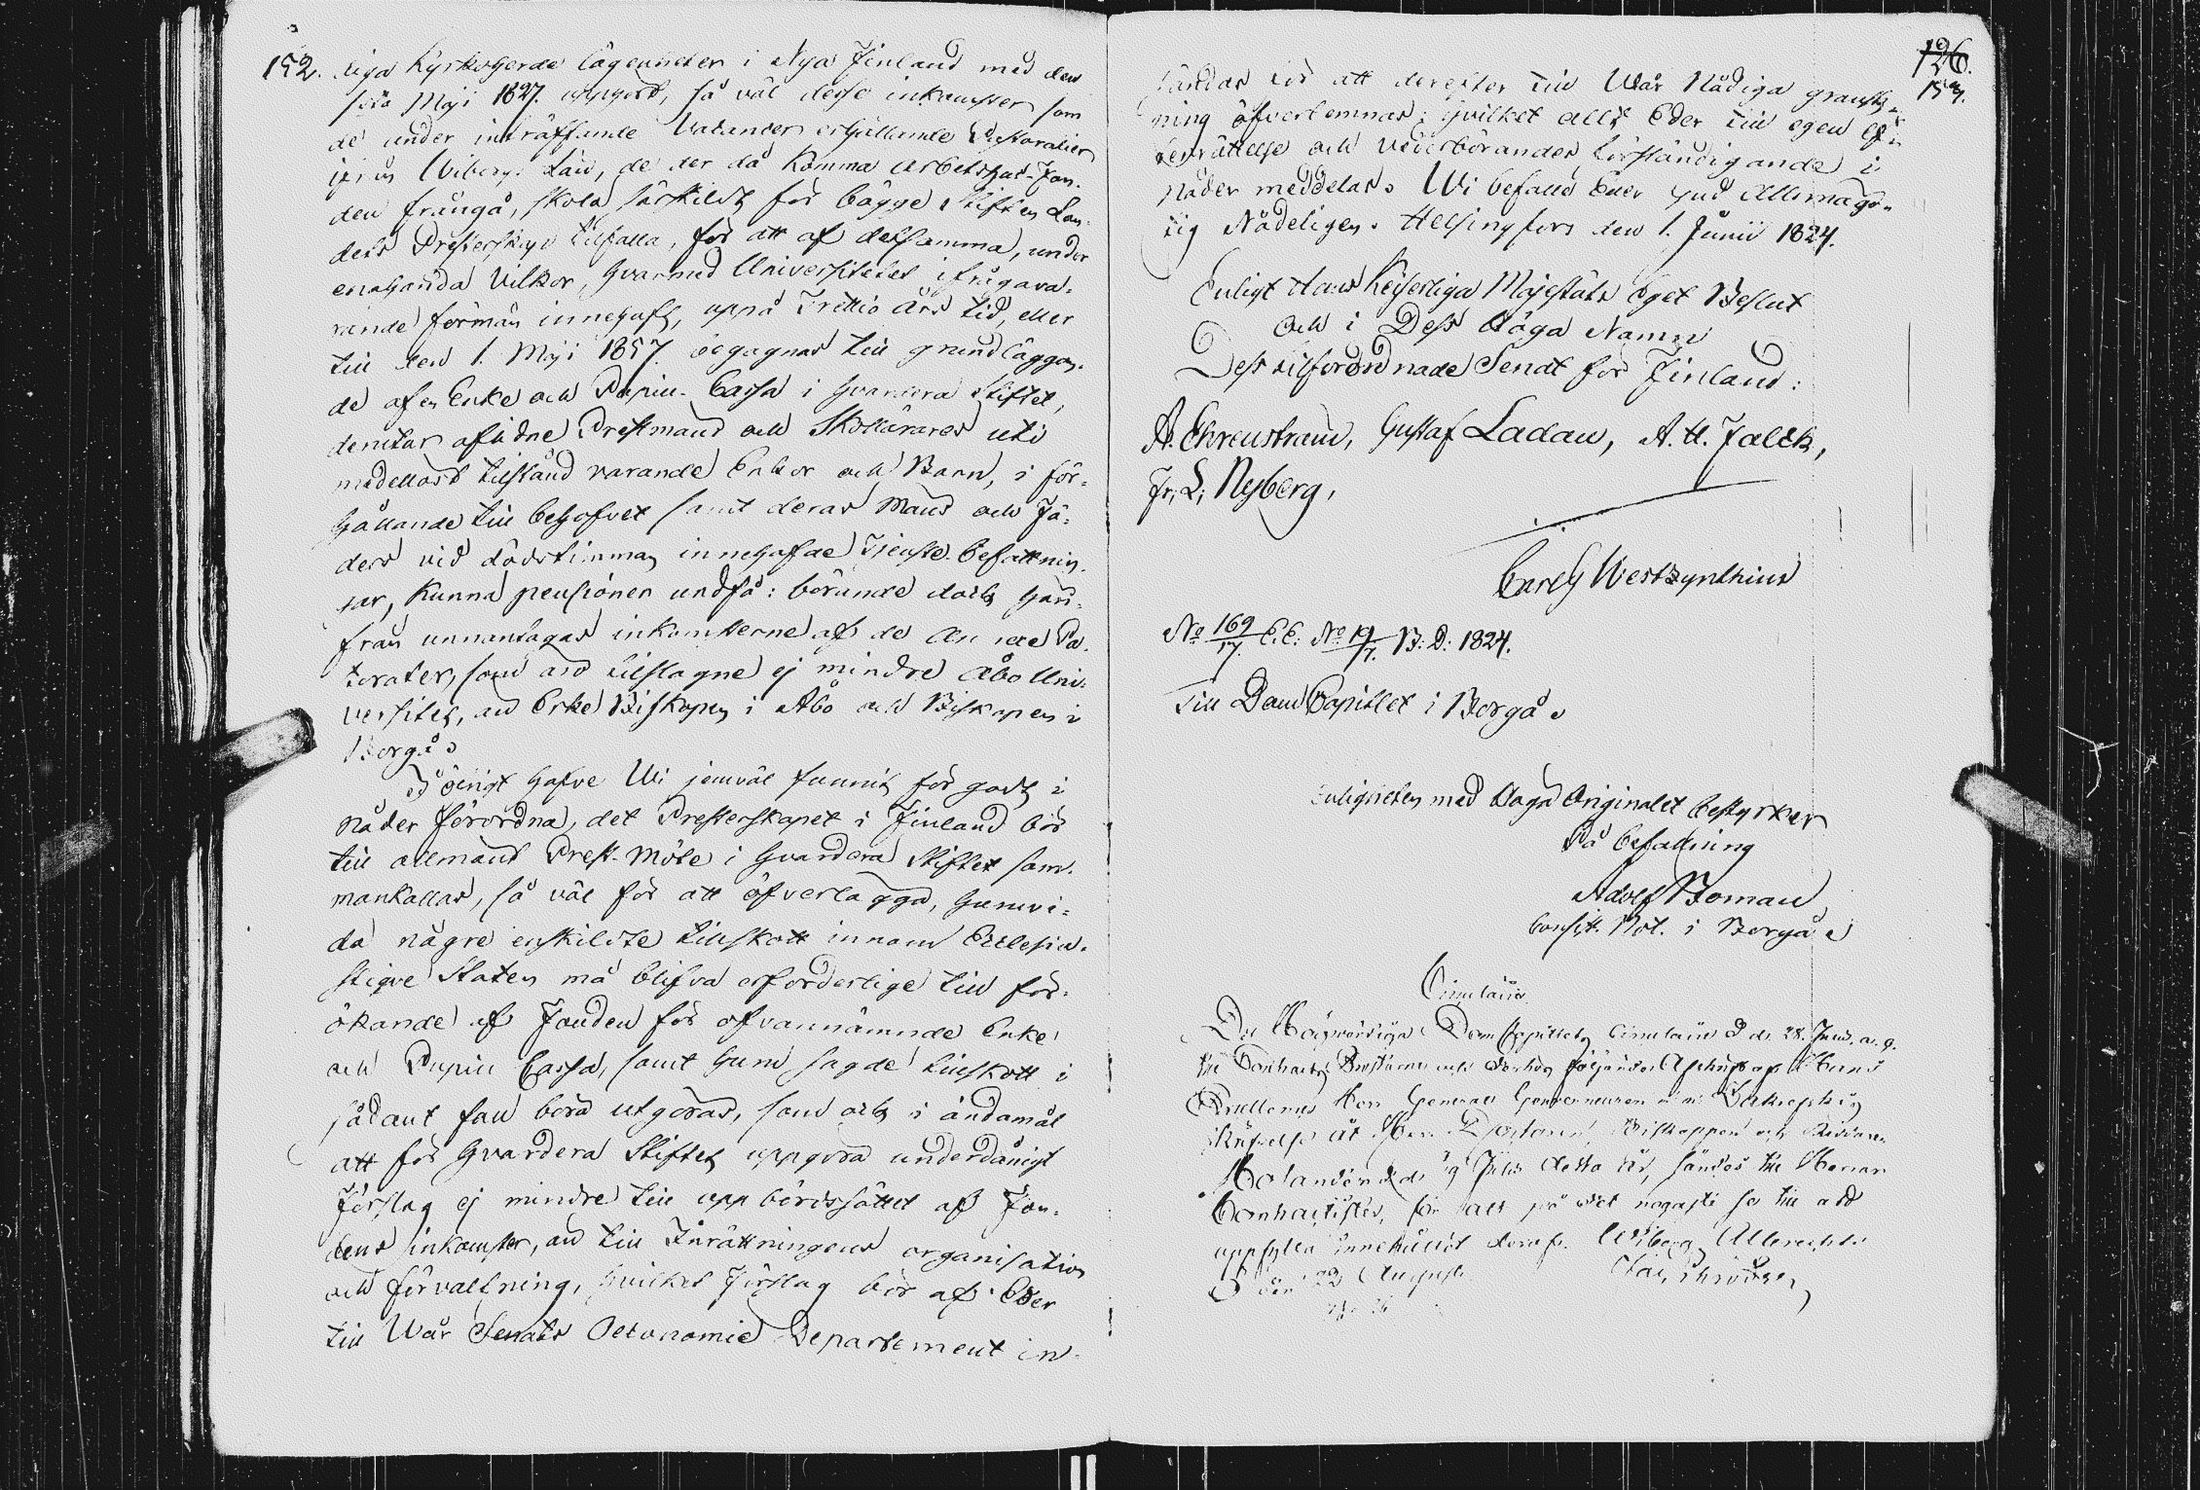 152.
liga Kyrkoherde lägenheter i Nya Finland med den
förs Maji 1827. upphört, så väl desse inkomster som
de under inträffande Vacancer erhållande Pastoralier
ifrån Wiborgs Län, de der då komma Arbetshus-Fon-
den frångå, skola särskildt för bägge Stiften Lan-
dets Presterskap tillfalla, för att af detsamma, under
enahanda vilkor, hvarmed Universitetet ifrågava-
rande förmån innehaft, uppå Trettio års tid, eller
till den 1. Maji 1857. begagnas till grundläggan-
de af en Enke och Pupill-Cassa i hvardera Stiftet,
derutur aflidne Prestmäns och Skollärares uti
medellöst tillstånd varande Enkor och Barn, i för-
hållande till behofvet samt deras Mäns och Fä-
ders vid dödstimman innehafde Tjenste-befattnin-
gar, kunna pensioner undfå: börande dock här-
från unnantagas inkomsterne af de Pa-
storater, som äro tillslagne ej mindre Åbo Uni-
versitet, än Erke Biskopen i Åbo och Biskopen i
Borgå.
I öfrigt hafve Wi jemväl funnit för godt i
Nåder förordna, det Presterskapet i Finland bör
till allmänt Prest-Möte i hvardera Stiftet sam-
mankallas, så väl för att öfverlägga, huruvi-
da någre enskildte tillskott innom Ecclesia-
stique Staten må blifva erforderlige till för-
ökande af Fonden för ofvannämnde Enke
och Pupill Cassa, samt huru sagde tillskott i
sådant fall böra utgöras, som ock i ändamål
att för hvardera Stiftet uppgöra underdånigt
Förslag ej mindre till uppbördssättet af Fon-
dens inkomster, än till Inrättningens organisation
och förvaltning, hvilket Förslag bör af Eder
till Wår Senats Oeconomie Departement in-
126.
153.
sändas för att derefter till Wår Nådiga gransk-
ning öfverlemnas; hvilket allt Eder till egen ef-
terrättelse och vederbörandes förständigande i
Nåder meddelas. Wi befalle Eder Gud Allsmäg-
tig Nådeligen. Helsingfors den 1. Junii 1824.
Enligt Hans Kejserliga Majestäts Eget Beslut
och i Dess Höga Namn
Dess tillförordnade Senat för Finland:
A. Ehrenstrom, Gustaf Ladau, A. H. Falck,
Fr. L. Nyberg,
Carl G Westzynthius
No 169/17. E.E: No 19/7. B: D: 1824.
Till Dom Capitlet i Borgå.
Enligheten med Höga Originalet bestyrker
På befallning
Adolf Boman
Consist. Not. i Borgå
Circulair
Det Högvördiga Dom Capitlets Circulair D. d. 28. Junii. a. g.
till Contractet Prosterne och
Herr General Gouverneuren
Skrifvelse åt Herr Doctoren, Biskoppen och Riddaren
Molander D. d. 19 Julii detta år, sändes till Herrar
Contractister, för att på det nogaste se till att
uppfylla innehållet deraf. Wiborg
D. den 22 August